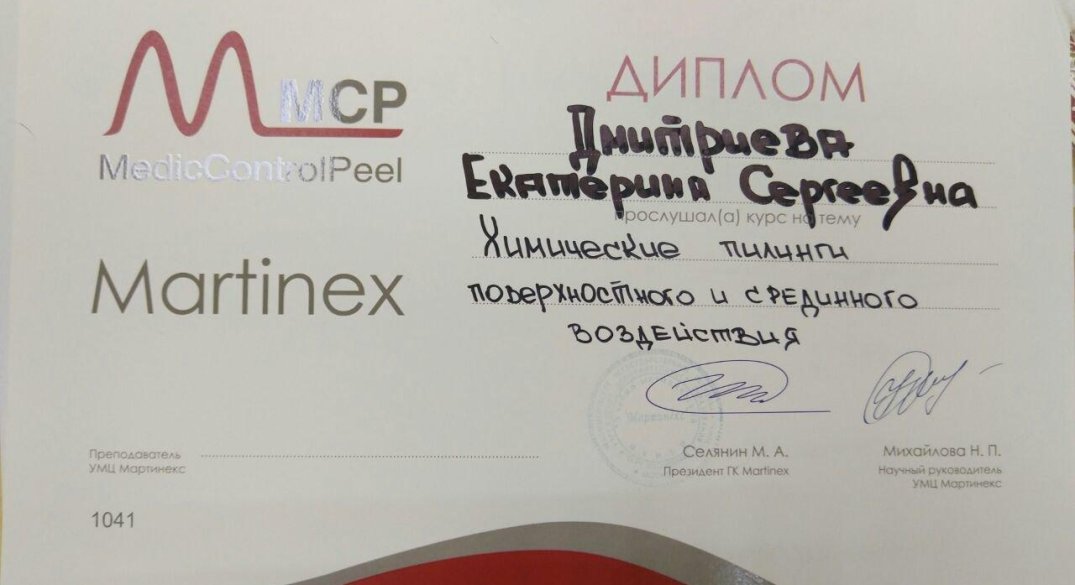 MCP
MedicControlPeel
Martinex
ДИПЛОМ
Дмитриева
Екатерина Сергеевна
прослушал(а) курс на тему
Химические пилинги
поверхностного и срединного
воздействия
Преподаватель
УМЦ Мартинекс
Селянин М. А.
Президент ГК Martinex
Михайлова Н. П.
Научный руководитель
УМЦ Мартинекс
1041